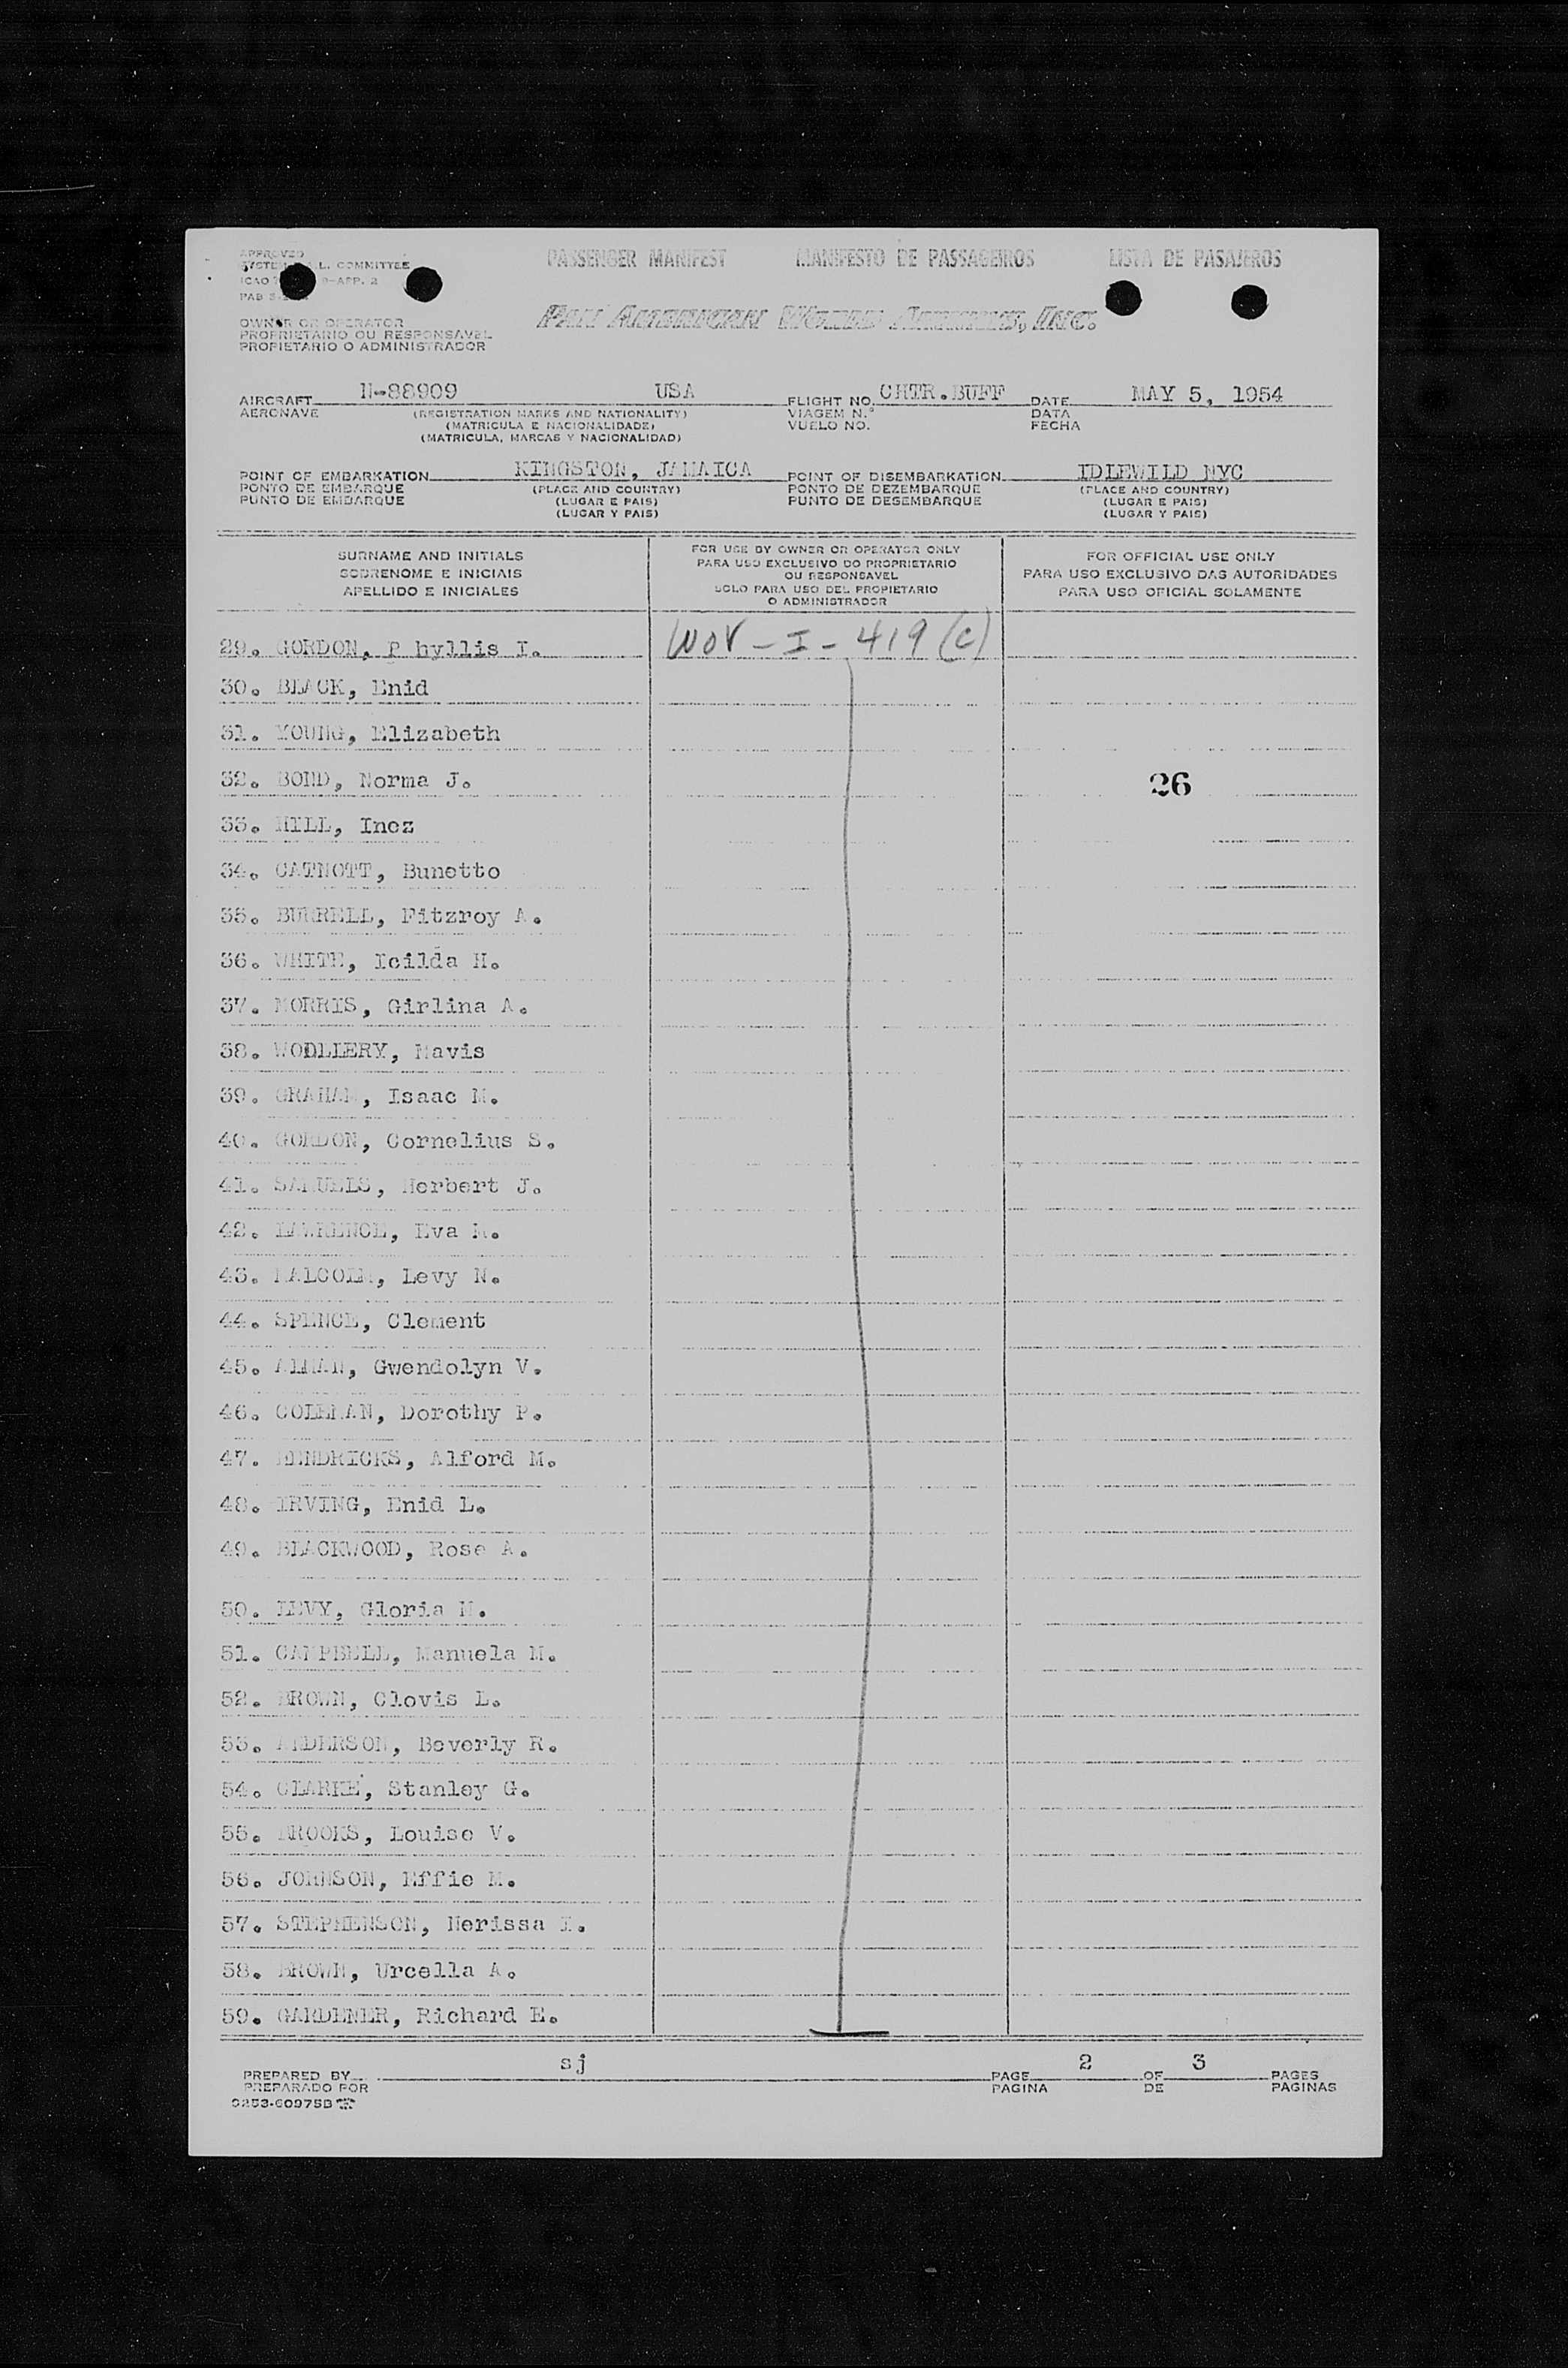 APPROVED PASSENGER MANIFEST MANIFESTO DE PASSAGEIROS LISTA DE PASAJEROS
SYSTEM L. COMMITTEE
ICAO 9-APP. 2
PAB
OWNER OR OPERATOR
PROPRIETARIO OU RESPONSAVEL
PROPIETARIO O ADMINISTRADOR
PAN AMERICAN WORLD AIRWAYS, INC.
AIRCRAFT N-88909 USA FLIGHT NO. CHTR.BUFF DATE MAY 5, 1954
AERONAVE (REGISTRATION MARKS AND NATIONALITY) VIAGEM N.º DATA
(MATRICULA E NACIONALIDADE) VUELO NO. FECHA
(MATRICULA, MARCAS Y NACIONALIDAD)
POINT OF EMBARKATION KINGSTON, JAMAICA POINT OF DISEMBARKATION IDLEWILD NYC
PONTO DE EMBARQUE (PLACE AND COUNTRY) PONTO DE DEZEMBARQUE (PLACE AND COUNTRY)
PUNTO DE EMBARQUE (LUGAR E PAIS) PUNTO DE DESEMBARQUE (LUGAR E PAIS)
(LUGAR Y PAIS) (LUGAR Y PAIS)
SURNAME AND INITIALS
SOBRENOME E INICIAIS
APELLIDO E INICIALES
FOR USE BY OWNER OR OPERATOR ONLY
PARA USO EXCLUSIVO DO PROPRIETARIO
OU RESPONSAVEL
SOLO PARA USO DEL PROPIETARIO
O ADMINISTRADOR
FOR OFFICIAL USE ONLY
PARA USO EXCLUSIVO DAS AUTORIDADES
PARA USO OFICIAL SOLAMENTE
29. GORDON, P hyllis I. WOV - I - 419 (C)
30. BLACK, Enid
31. YOUNG, Elizabeth
32. BOND, Norma J. 26
33. HILL, Inez
34. CATNOTT, Bunetto
35. BURRELL, Fitzroy A.
36. WHITE, Icilda H.
37. MORRIS, Girlina A.
38. WODLLERY, Mavis
39. GRAHAM, Isaac M.
40. GORDON, Cornelius S.
41. SAMUELS, Herbert J.
42. LAWRENCE, Eva M.
43. MALCOLM, Levy N.
44. SPENCE, Clement
45. ALMAN, Gwendolyn V.
46. COLEMAN, Dorothy P.
47. HENDRICKS, Alford M.
48. IRVING, Enid L.
49. BLACKWOOD, Rose A.
50. LEVY, Gloria M.
51. CAMPBELL, Manuela M.
52. BROWN, Clovis L.
53. ANDERSON, Beverly R.
54. CLARKE, Stanley G.
55. BROOKS, Louise V.
56. JOHNSON, Effie M.
57. STEPHENSON, Nerissa I.
58. BROWN, Urcella A.
59. GARDENER, Richard E.
PREPARED BY sj PAGE 2 OF 3 PAGES
PREPARADO POR PAGINA DE PAGINAS
0253-60975B